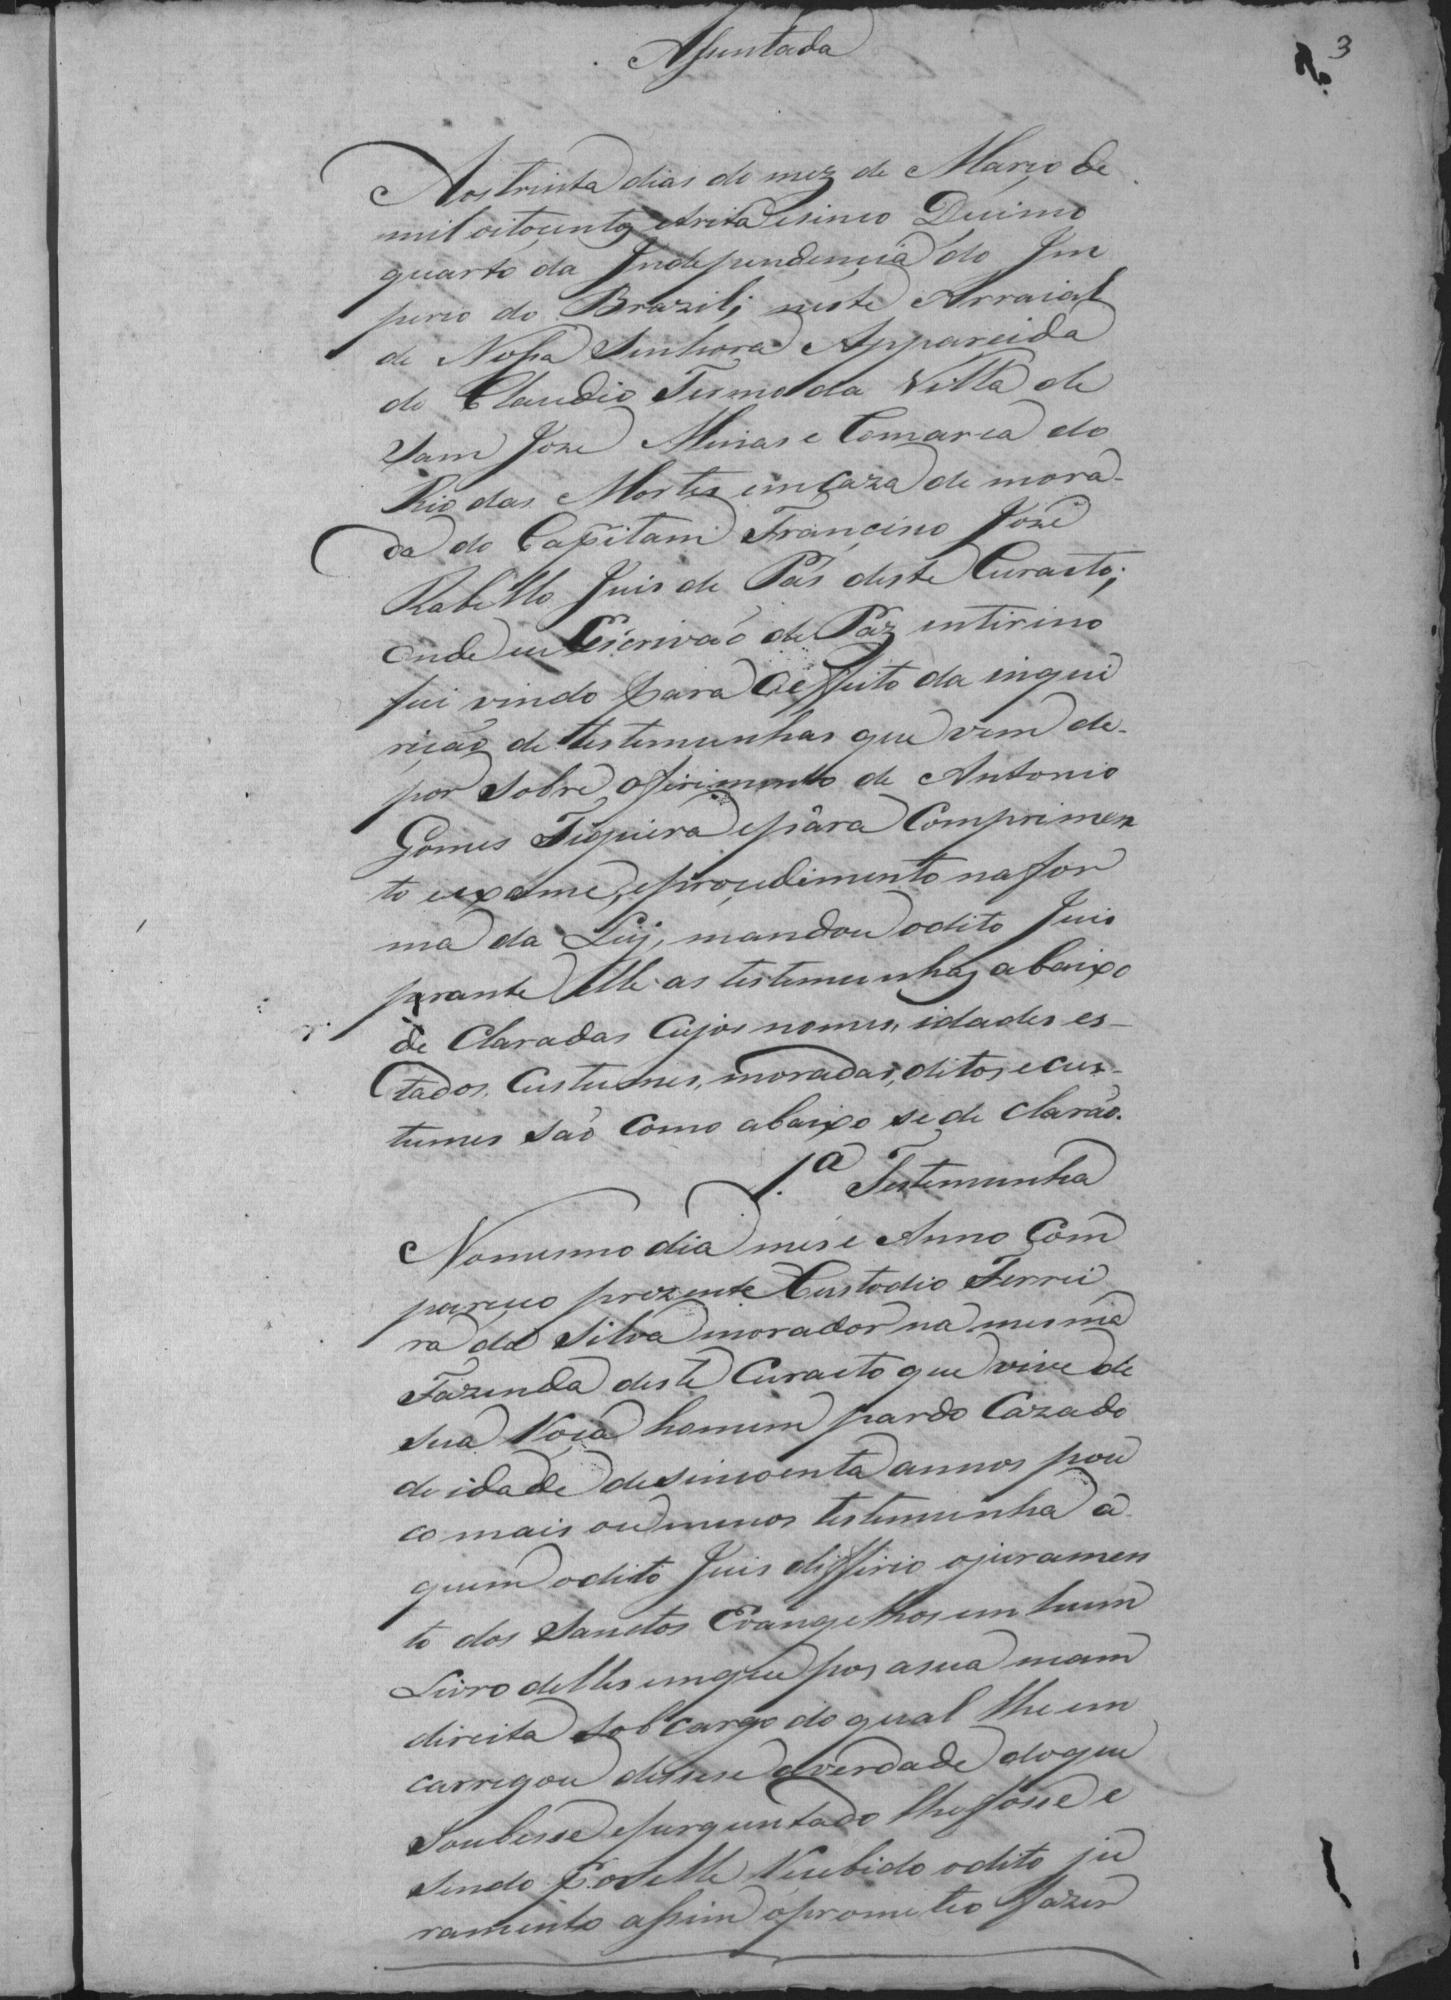 Assentada
3
Aos trinta dias do mez de Março de
mil oitocentos etrita esinco Decimo
quarto da Independencia do Im
perio do Brazil; neste Arraial
de Nossa Senhora Appareida
do Claudio Termo da Villa de
Sam Joze Minas e Comarca do
Rio das Mortes em Caza de mora-
da do Capitam Francisco José
Rabello Juis de Pás deste Curacto;
onde eu Escrivaõ de Paz entirino
fui vindo para oeffeito da inqui
rição de testemunhas que vem de-
por sobre oferimento de Antonio
Gomes Siqueira epára Comprimen
to eexame, eprocedimento nafor
ma da Lei, mandou odito Juis
prante elle as testemunhas abaixo
de Claradas Cujos nomes, idades es-
tados, Custumes, moradas, ditos, ecus-
tumes saõ Como abaixo se de claraõ.
1.ª Testemunha
Nomesmo dia mes e Anno Com
pareceo prezente Custodio Ferrei
ra da Silva morador na mesma
Fazenda deste Curacto que vive de
sua Roça homem pardo Cazado
de idade desincoenta annos pou
co mais ou menos testemunha a
quem odito Juis differio ojuramen
to dos Sanctos Evangelhos em hum
Livro delles emque pos asua mam
direita sob cargo do qual lhe en
carregou dissese averdade doque
Soubesse epurguntado lhe fosse e
sendo por elle Recebido odito ju
ramento assim oprometeo fazer